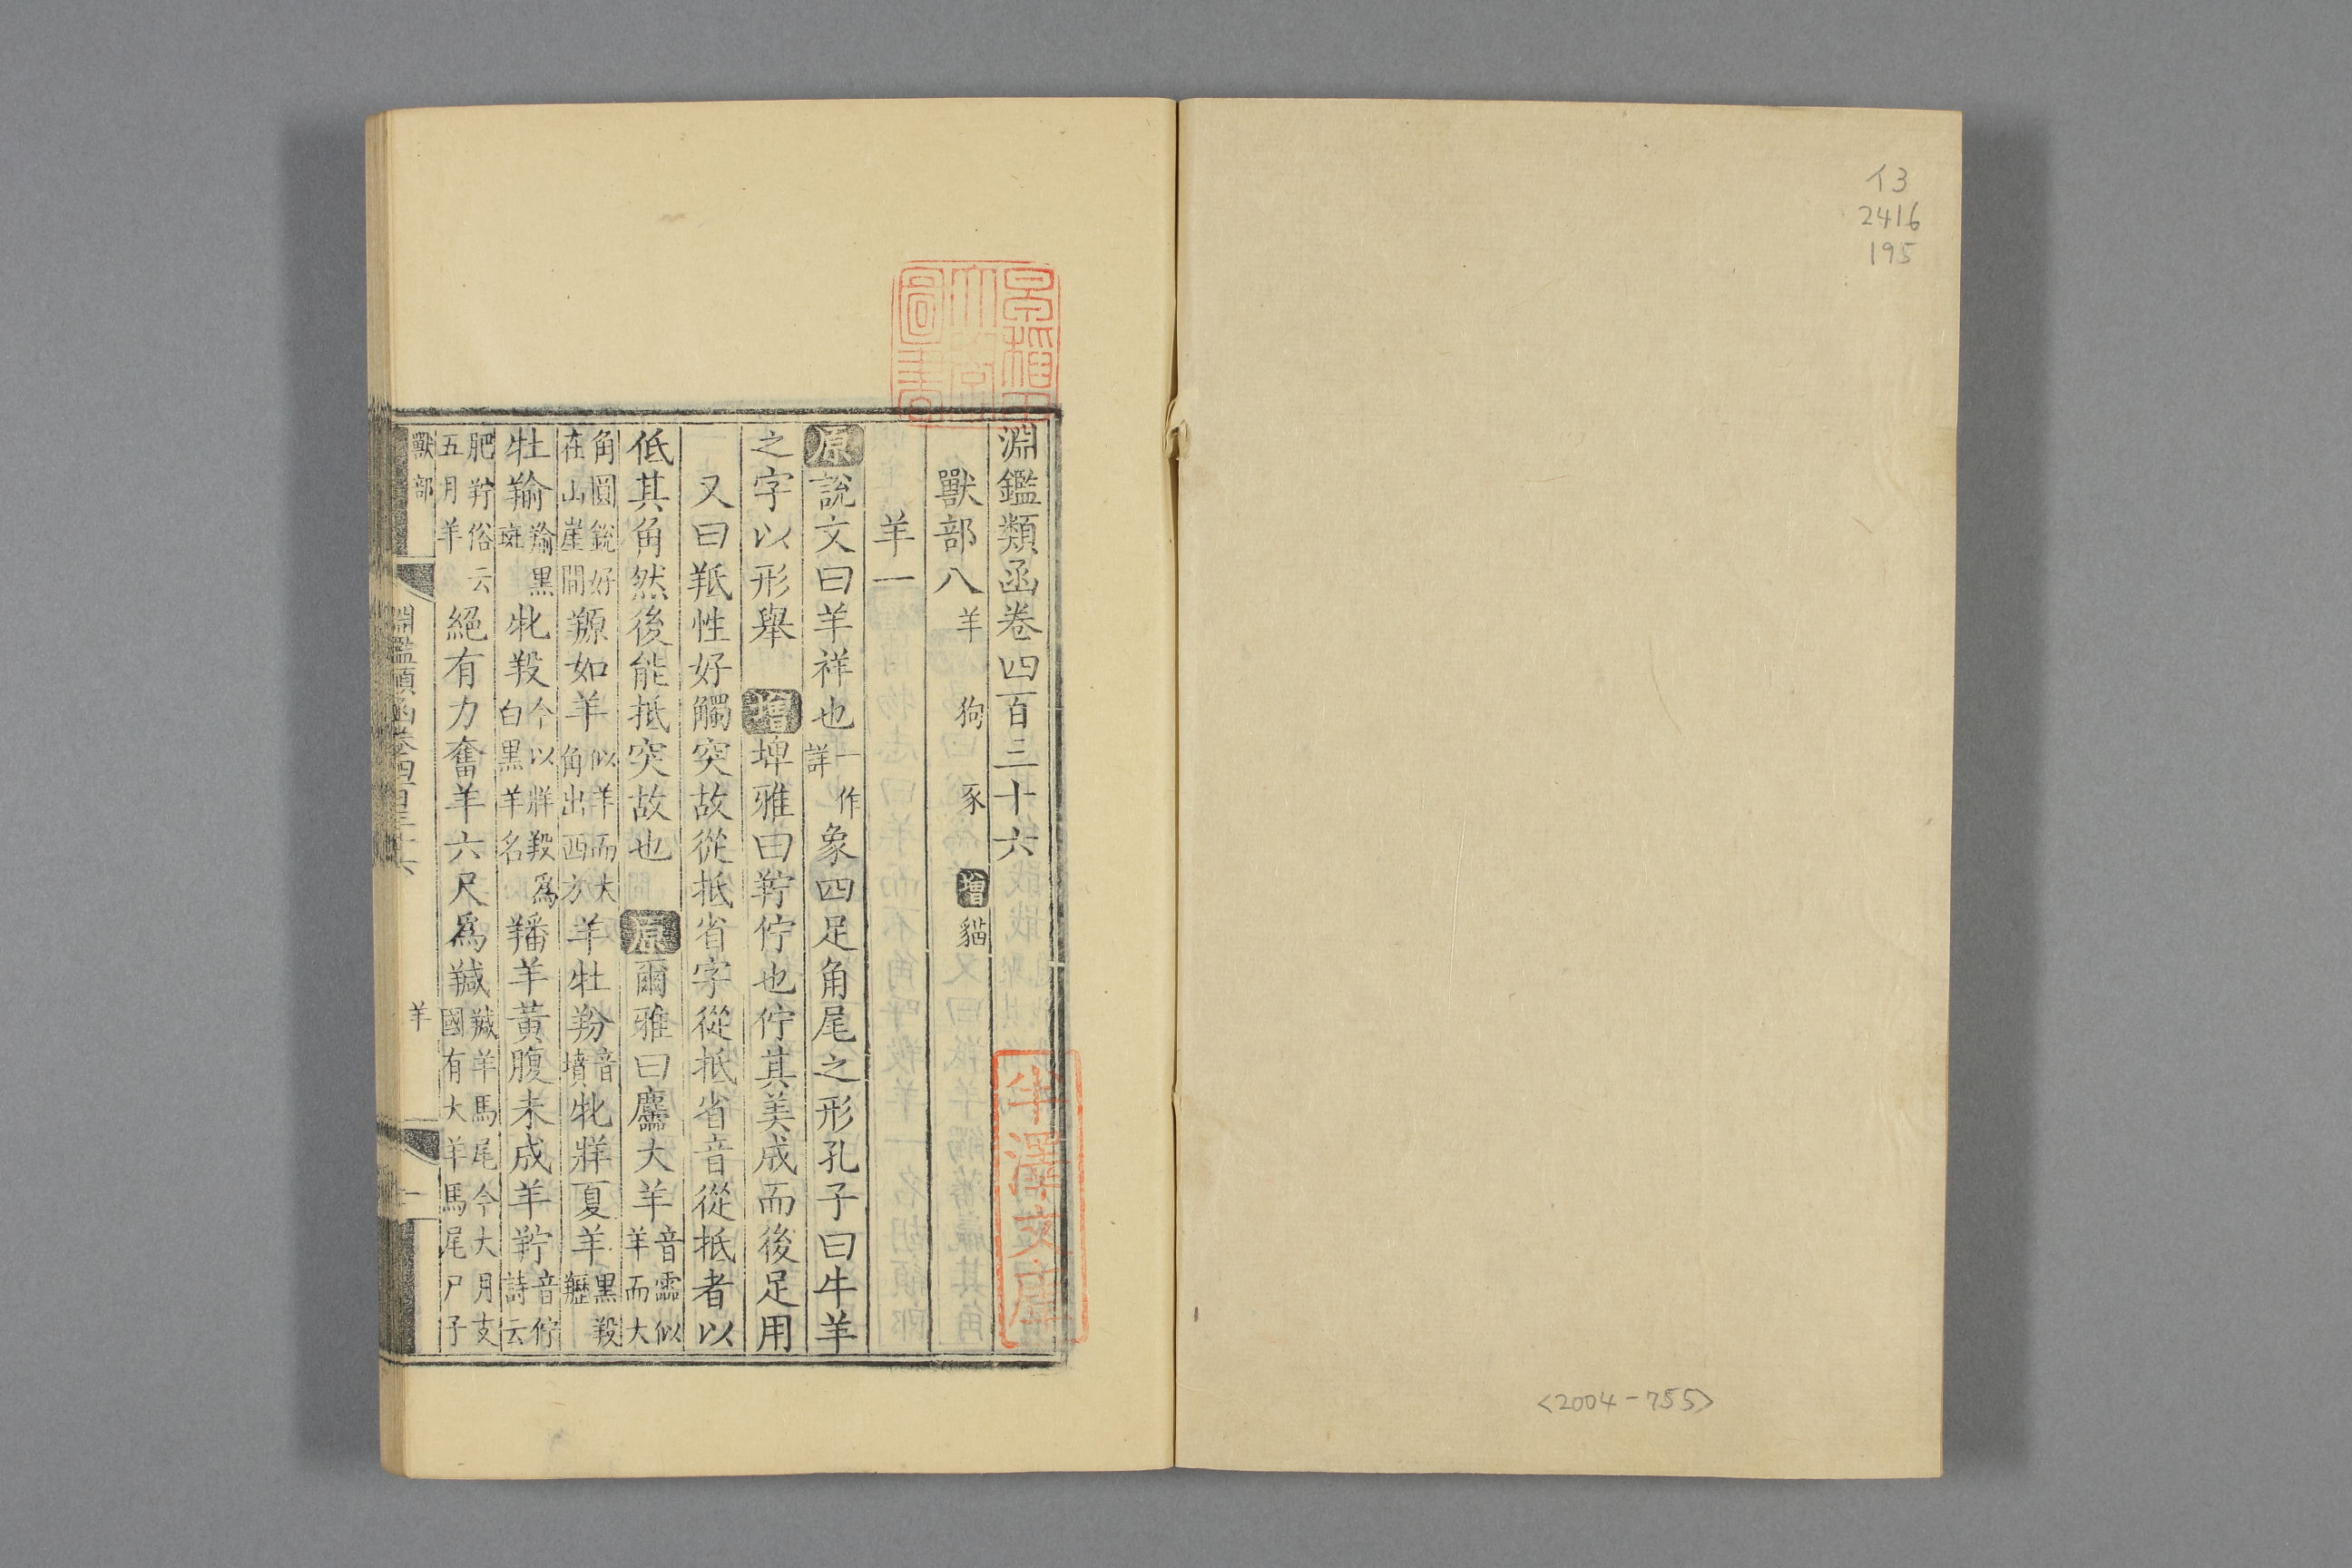 イ3
2416
195
<2004-755>
早稲田
大學
圖書
淵鑑類函卷四百三十六
獸部八 羊 狗 豕 增貓
羊一
原說文曰羊祥也一作詳象四足角尾之形孔子曰牛羊
之字以形舉 增埤雅曰羜佇也佇其美成而後足用
又曰羝性好觸突故從抵省字從抵省音從抵者以
低其角然後能抵突故也 原爾雅曰麢大羊音靈似羊而大
角圓銳好在山崖間羱如羊似羊而大角出西方羊牡羒音墳牝牂夏羊黑羖䍽
牡羭羭黑斑牝羖今以牂羖爲白黑羊名羳羊黃腹未成羊羜音佇詩云
肥羜俗云五月羊絕有力奮羊六尺爲羬羬羊馬尾今大月支國有大羊馬尾尸子
獸部
淵鑑類函卷四百三十六
羊
一